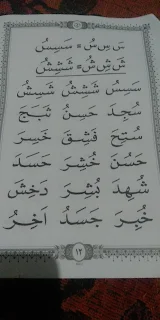 سَ سِ سُ = سَسِسُ
شَ شِ شُ = شَشِشُ
سَبَسُ شَشِشُ شَبَسُ
سُجِدَ حَسِنُ ثَبَجَ
سُتِحَ فَشِقَ خَسِرَ
حَسُنَ حُشِرَ حَسَدَ
شُهِدَ بُشِرَ دَخِشَ
خُبِرَ جَسَدُ اَخِرُ
١٢